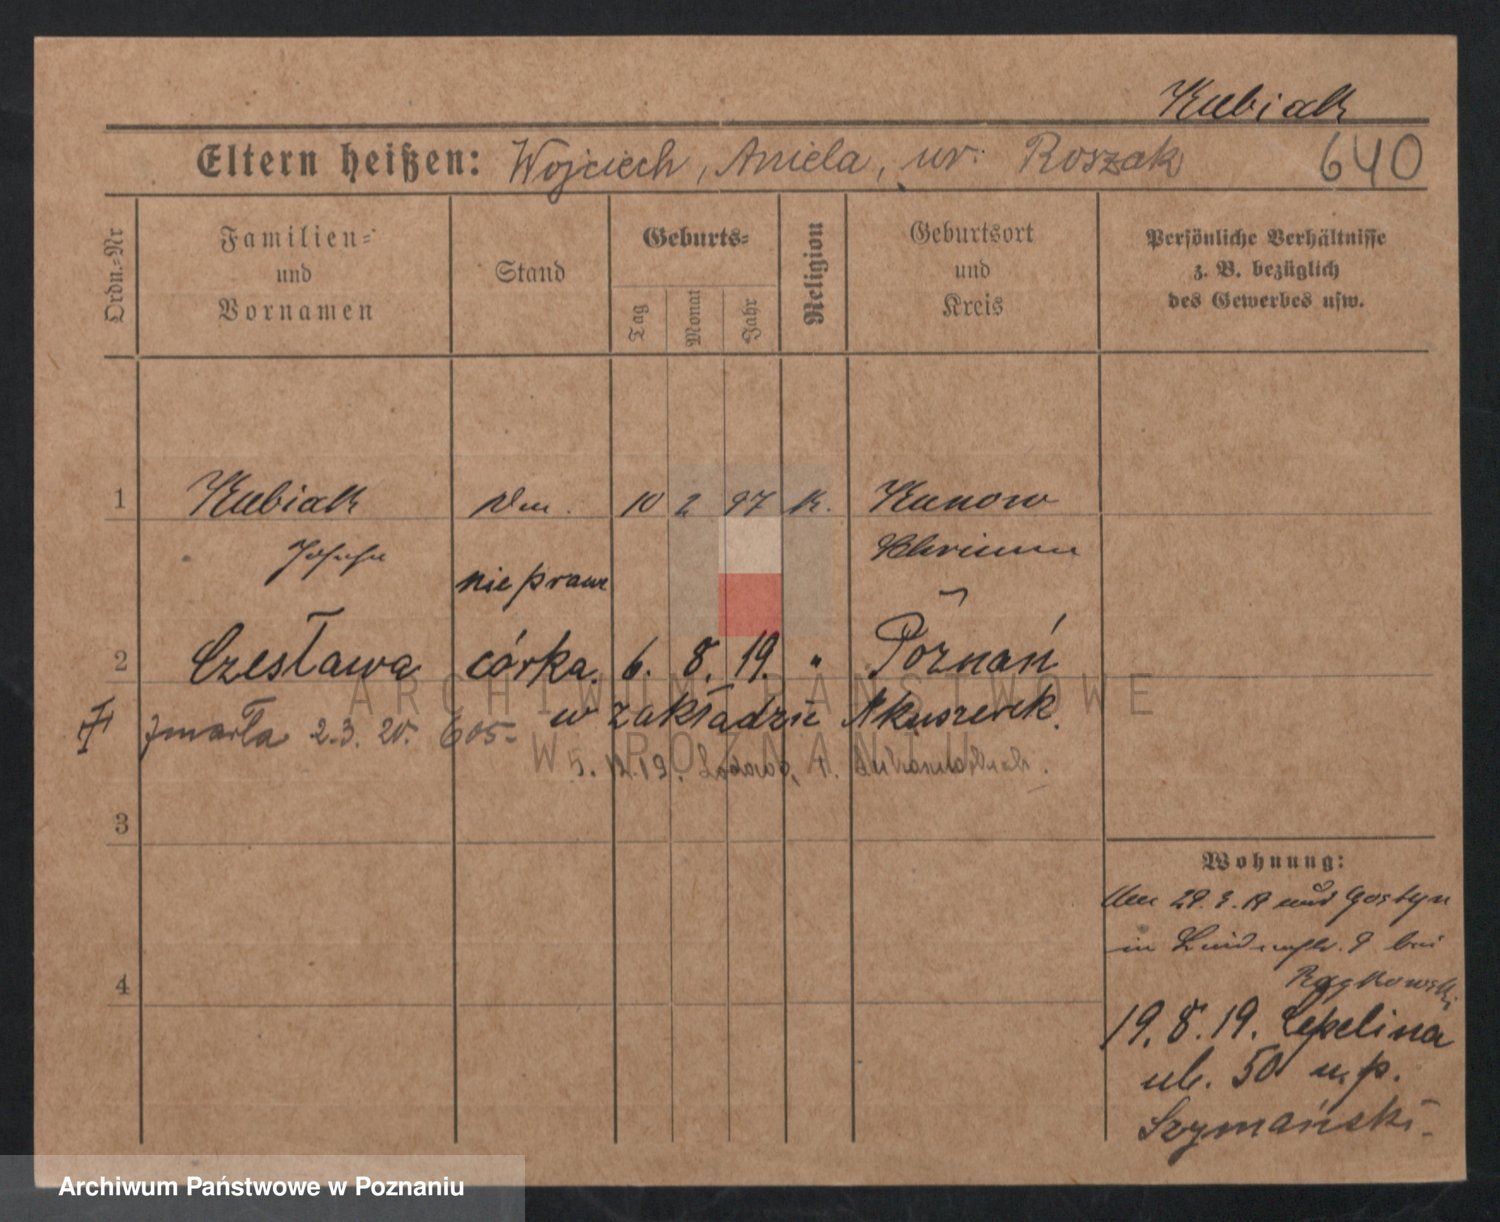 Kubiak
Eltern heißen: Wojciech, Aniela, ur. Roszak 640
Ordn.-Nr
Familien-
und
Vornamen
Stand
Geburts-
Tag
Monat
Jahr
Religion
Geburtsort
und
Kreis
Persönliche Verhältnisse
z. B. bezüglich
des Gewerbes usw.
1 Kubiak 10 2 97 K. Kunowo
nie praw
2 Czesława córka. 6. 8. 19. " Poznań
w zakładzie Akuszerek.
Zmarła 2.3. 20. 605-
5. 12.19.
3
4
Wohnung:
Gostyn
in 9 bei
19. 8. 19. Cepelina
ul. 50 u. p.
Szymański.
ARCHIWUM PAŃSTWOWE
W POZNANIU
Archiwum Państwowe w Poznaniu